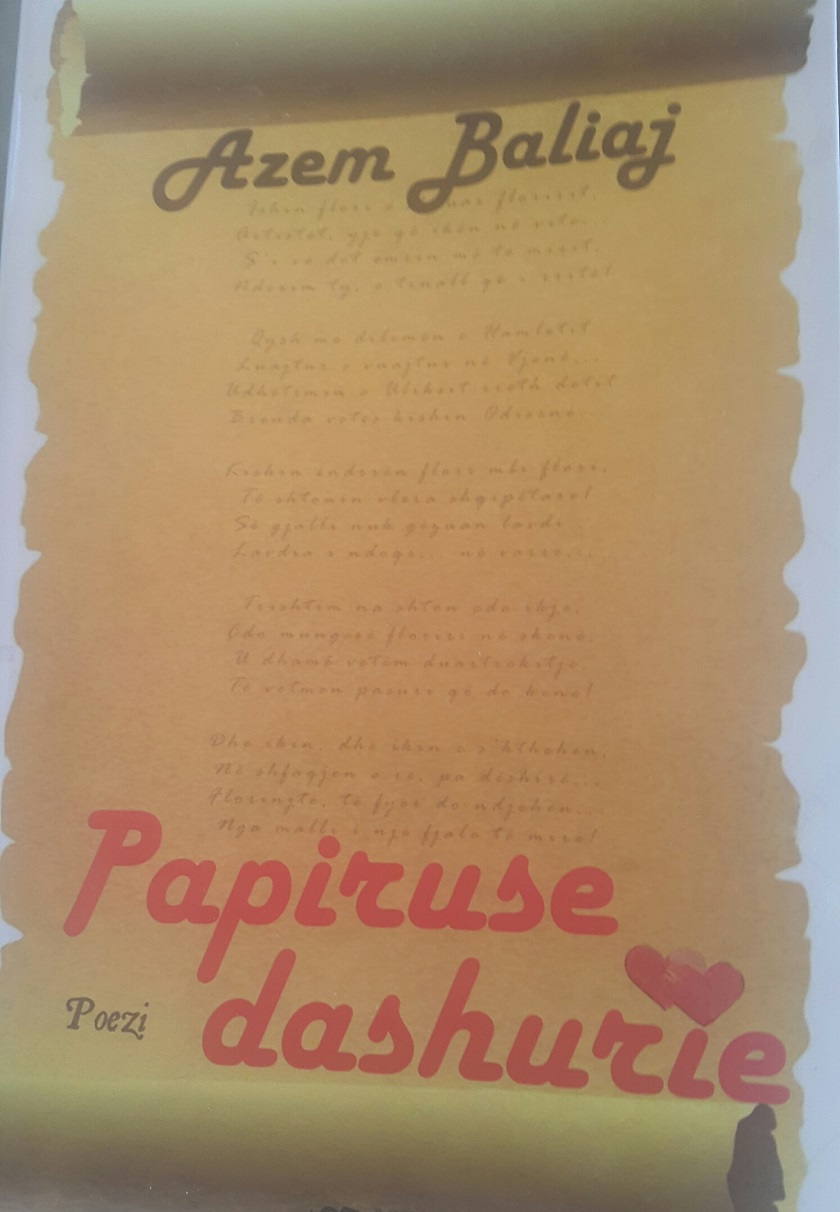 Azem Baliaj
Ishin flori e floririt.
Artistët, yje që ikën në vite.
S'i ra dot emrin më të mirit.
Nderim ty, o tmall që i rritë!
Qysh me dilemën e Hamletit
Luajtur e vuajtur në Vjenë...
Udhëtimin e Uliksit rreth detit
Brenda vetes kishin Odisenë...
Kishin ëndrrën flori mbi flori,
Të shtonin vlera shqipëtare!
Së gjalli nuk gëzuan lavdi
Lavdia i ndoqi... në varre...
Trishtim na shton çdo ikje,
Çdo mungesë floriri në skenë,
U dhamë vetëm duartrokitje,
Të vetmen pasuri që do kenë!
Dhe ikin, dhe ikin e s'kthehen,
Në shfaqjen e re, pa dëshirë...
Florinjtë, të fyer do ndjehen...
Nga malli i një fjale të mirë!
Papiruse
dashurie
Poezi